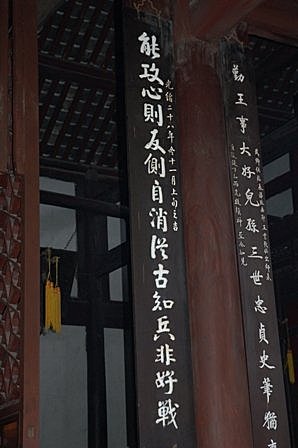 勤王事大好兒孫三世忠貞史筆猶
光緒二十八年冬十一月上旬之吉
能攻心則反側自消從古知兵非好戰